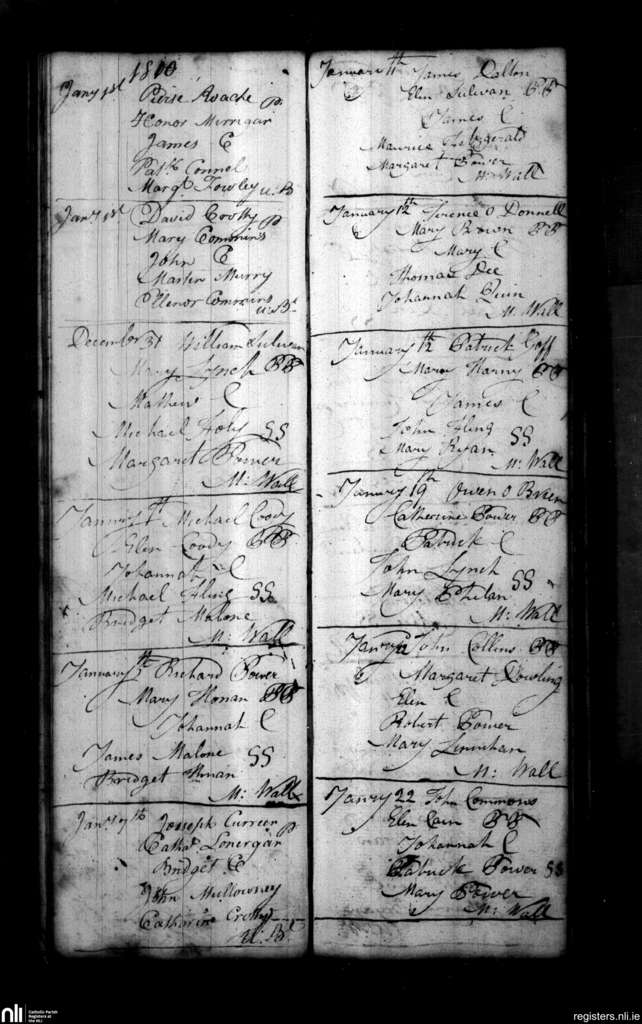 1810
Jany 1st Peirse Roache P
Honor Merrigan
James C
Patk Connel
Margt Fowley
Jany 1st David Crotty P
Mary Commins
John C
Martin Murry
Ellenor Commins
December 31 William Sulivan
Mary Lynch PP
Mathew C
Michael Foly SS
Margaret Power
M: Wall
January Michael Coody
Elen Coody PP
Johannah C
Michael Fling SS
Bridget Malone
M: Wall
January Richard Power
Mary Honan PP
Johannah C
James Malone SS
Bridget Honan
M: Wall
Jany 7th Joseph Curreen
Cathe Lonergan P
Bridget C
John Mullowney
Catharin Crotty
January 11th James Dalton
Elen Sulivan PP
James C
Maurice Fitzgerald
Margaret Power
M: Wall
January 12th Terence O Donnell
Mary Brown PP
Mary C
Thomas Dee
Johannah Quin
M: Wall
January 12th Patrick Goff
Mary Harny PP
James C
John Fling SS
Mary Ryan
M: Wall
January 19th Owen O Brien
Catherine Power PP
Patrick C
John Lynch SS
Mary Phelan
M: Wall
Janry John Collins PP
Margaret Dowling
Elen C
Robert Power
Mary Linnihan
M: Wall
Janry 22 John Commons
Elen Cain PP
Johannah C
Patrick Power SS
Mary Power
M: Wall
nli
Catholic Parish
Registers at
the NLI
registers.nli.ie